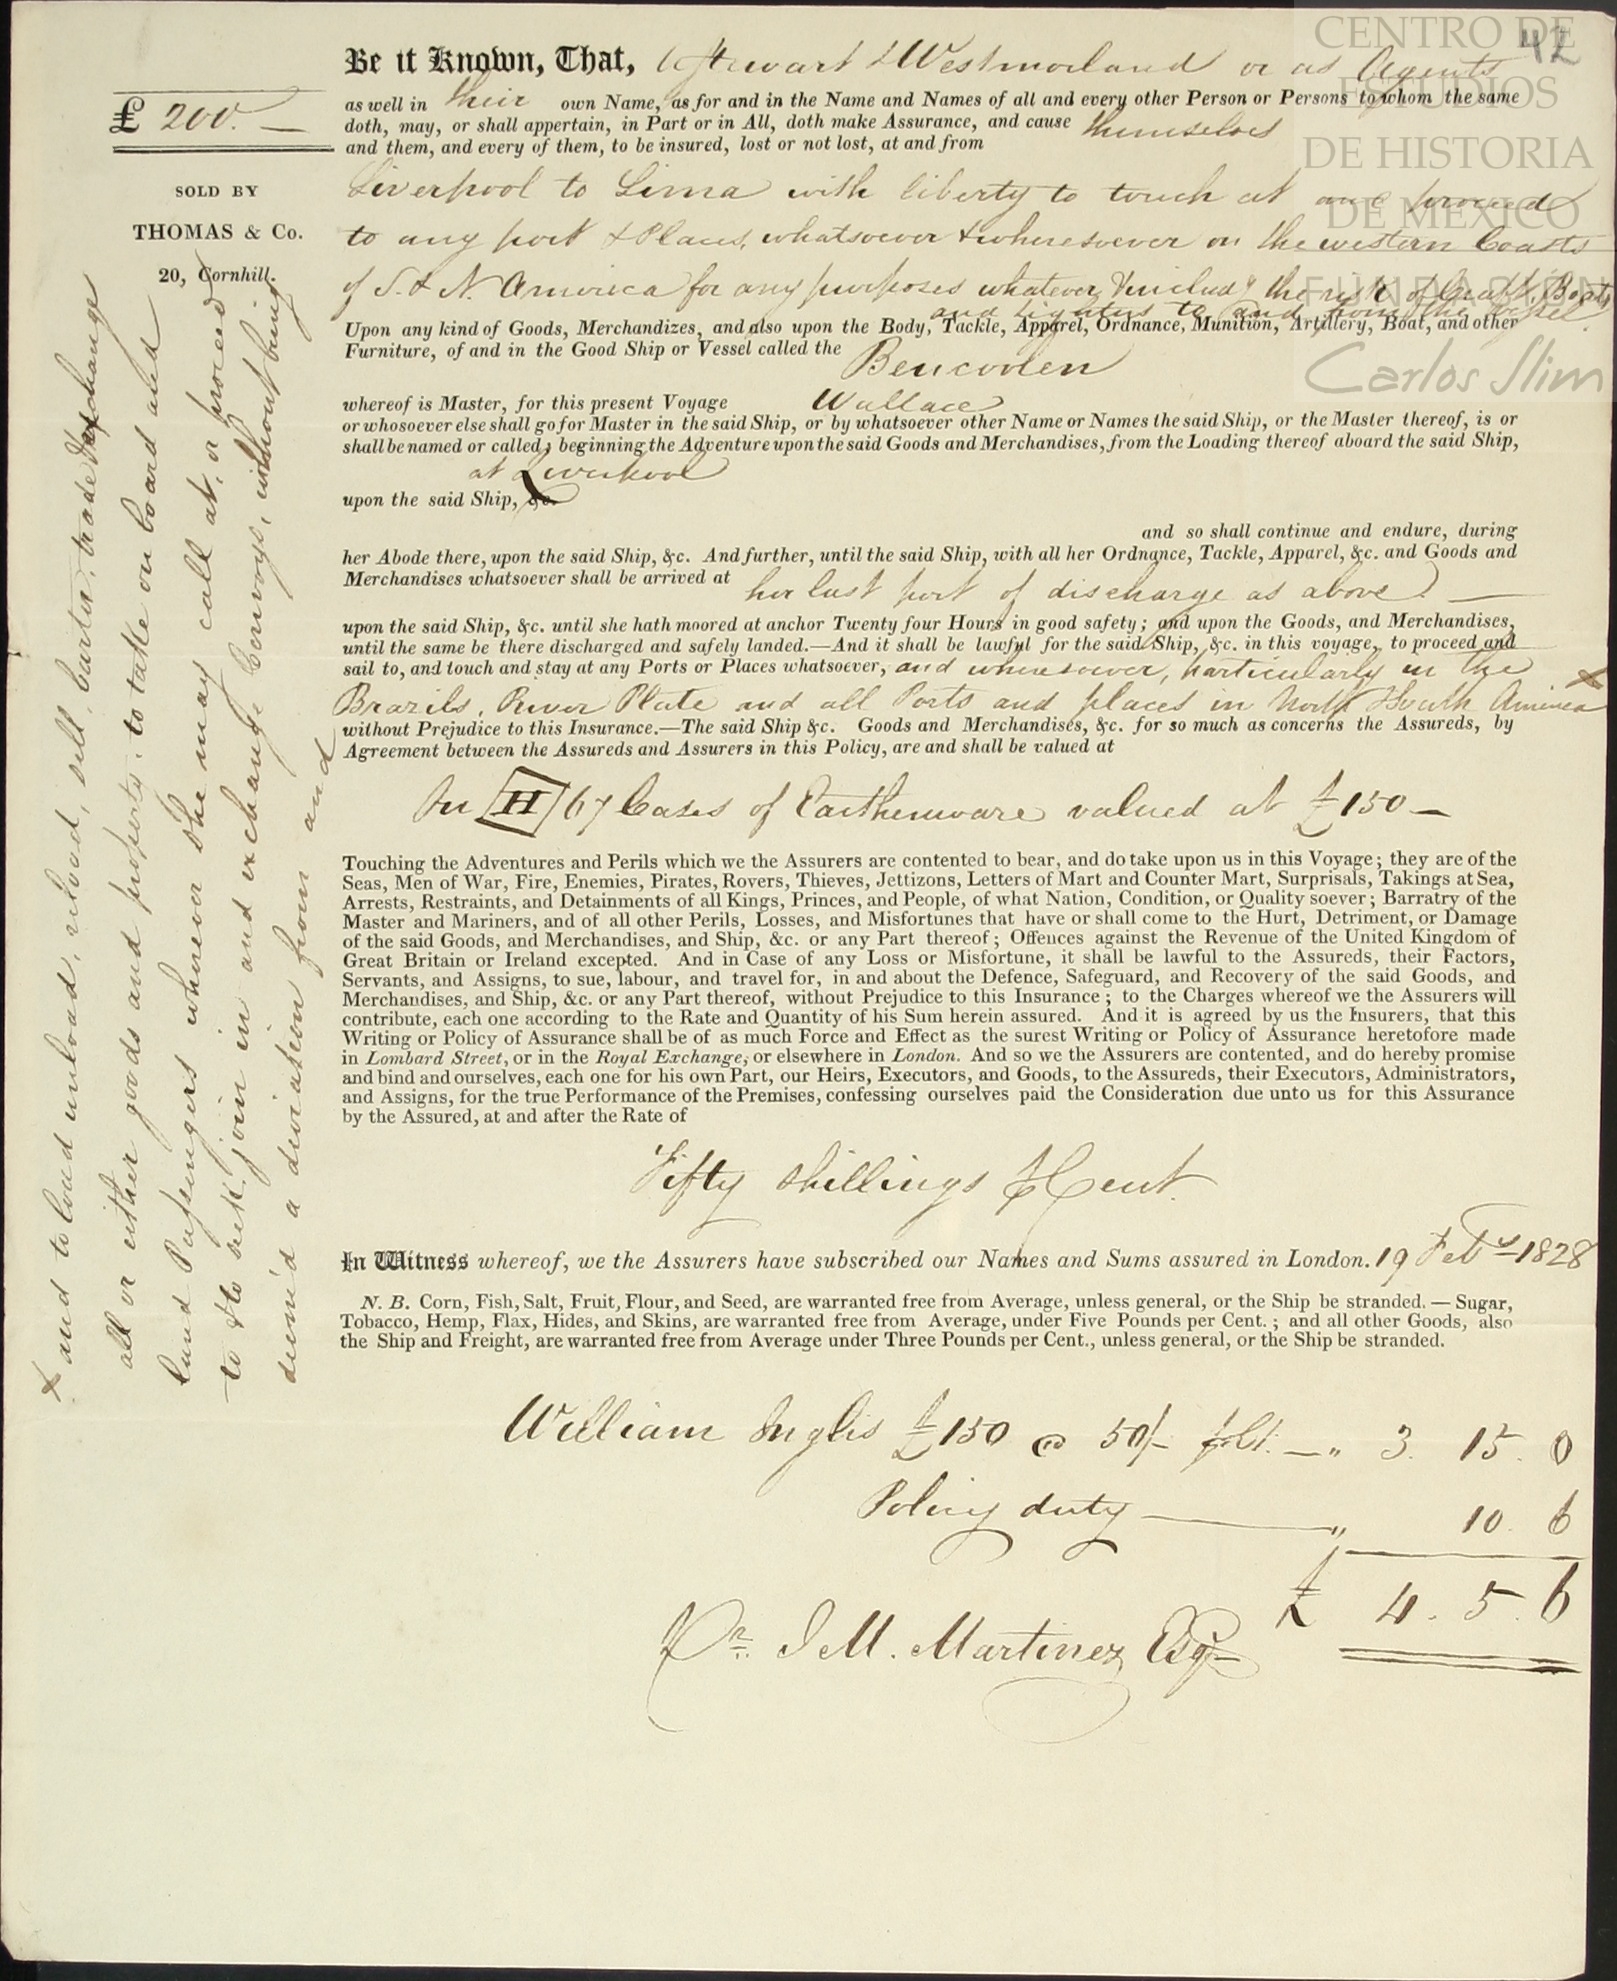 CENTRO DE
ESTUDIOS
DE HISTORIA
DE MEXICO
Carlos Slim
42
Be it Known, That, Stewart & Westmorland or as Agents
£ 200. —
as well in their own Name, as for and in the Name and Names of all and every other Person or Persons to whom the same
doth, may, or shall appertain, in Part or in All, doth make Assurance, and cause themselves
and them, and every of them, to be insured, lost or not lost, at and from
SOLD BY
THOMAS & Co.
20, Cornhill.
Liverpool to Lima with liberty to touch at and proceed
to any port & Places, whatsoever & wheresoever on the western Coasts
of S. & N. America for any purposes whatever includg the risk of Craft, Boats
and Lighters to and from the Vessel
Upon any kind of Goods, Merchandizes, and also upon the Body, Tackle, Apparel, Ordnance, Munition, Artillery, Boat, and other
Furniture, of and in the Good Ship or Vessel called the Bencoolen
whereof is Master, for this present Voyage Wallace
or whosoever else shall go for Master in the said Ship, or by whatsoever other Name or Names the said Ship, or the Master thereof, is or
shall be named or called; beginning the Adventure upon the said Goods and Merchandises, from the Loading thereof aboard the said Ship,
at Liverpool
upon the said Ship, &c.
and so shall continue and endure, during
her Abode there, upon the said Ship, &c. And further, until the said Ship, with all her Ordnance, Tackle, Apparel, &c. and Goods and
Merchandises whatsoever shall be arrived at her last port of discharge as above —
upon the said Ship, &c. until she hath moored at anchor Twenty four Hours in good safety; and upon the Goods, and Merchandises,
until the same be there discharged and safely landed.—And it shall be lawful for the said Ship, &c. in this voyage, to proceed and
sail to, and touch and stay at any Ports or Places whatsoever, and wheresoever, particularly in the x
Brazils, River Plate and all Ports and places in North & South America
without Prejudice to this Insurance.—The said Ship &c. Goods and Merchandises, &c. for so much as concerns the Assureds, by
Agreement between the Assureds and Assurers in this Policy, are and shall be valued at
On H 67 Cases of Earthenware valued at £150 —
Touching the Adventures and Perils which we the Assurers are contented to bear, and do take upon us in this Voyage; they are of the
Seas, Men of War, Fire, Enemies, Pirates, Rovers, Thieves, Jettizons, Letters of Mart and Counter Mart, Surprisals, Takings at Sea,
Arrests, Restraints, and Detainments of all Kings, Princes, and People, of what Nation, Condition, or Quality soever; Barratry of the
Master and Mariners, and of all other Perils, Losses, and Misfortunes that have or shall come to the Hurt, Detriment, or Damage
of the said Goods, and Merchandises, and Ship, &c. or any Part thereof; Offences against the Revenue of the United Kingdom of
Great Britain or Ireland excepted. And in Case of any Loss or Misfortune, it shall be lawful to the Assureds, their Factors,
Servants, and Assigns, to sue, labour, and travel for, in and about the Defence, Safeguard, and Recovery of the said Goods, and
Merchandises, and Ship, &c. or any Part thereof, without Prejudice to this Insurance; to the Charges whereof we the Assurers will
contribute, each one according to the Rate and Quantity of his Sum herein assured. And it is agreed by us the Insurers, that this
Writing or Policy of Assurance shall be of as much Force and Effect as the surest Writing or Policy of Assurance heretofore made
in Lombard Street, or in the Royal Exchange, or elsewhere in London. And so we the Assurers are contented, and do hereby promise
and bind and ourselves, each one for his own Part, our Heirs, Executors, and Goods, to the Assureds, their Executors, Administrators,
and Assigns, for the true Performance of the Premises, confessing ourselves paid the Consideration due unto us for this Assurance
by the Assured, at and after the Rate of
Fifty Shillings P Cent.
In Witness whereof, we the Assurers have subscribed our Names and Sums assured in London. 19 Feby 1828
N. B. Corn, Fish, Salt, Fruit, Flour, and Seed, are warranted free from Average, unless general, or the Ship be stranded. — Sugar,
Tobacco, Hemp, Flax, Hides, and Skins, are warranted free from Average, under Five Pounds per Cent.; and all other Goods, also
the Ship and Freight, are warranted free from Average under Three Pounds per Cent., unless general, or the Ship be stranded.
William Inglis £150 @ 50/- p Ct. — " 3. 15. 0
Policy duty — " 10. 6
£ 4. 5. 6
Pr. J M. Martinez Esqr
x and to load unload, reload, sell, barter, trade & exchange
all or either goods and property: to take on board and
land Passengers wherever she may call at, or proceed
to & to seek join in and exchange Convoys, without being
deem'd a deviation from and